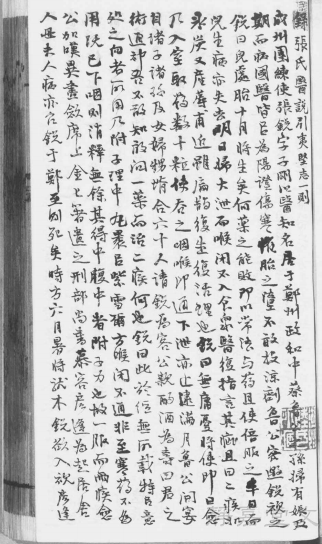 録張氏醫說引夷堅志一則
成州團練使張銳字子剛以醫知名居于鄭州政和中蔡魯公之孫婦有娠及
期而病國醫皆以為陽證傷寒懼胎之墮不敢投涼劑魯公密邀銳視之
銳曰兒處胎十月將生矣何藥之能敗即以常法與藥且使倍服之半日而
兒生病亦失去明日婦大泄而喉閉不入食眾醫復指言其疵且曰二疾如
冰炭又產蓐甫近雖扁鵲復生無活理也銳曰無庸憂將使即日愈
乃入室取藥數十粒使吞之咽喉即通下泄亦止逮滿月魯公開宴
自諸子諸孫及女婦甥壻合六十人請銳為客公親酌酒為壽曰君之
術通神吾不敢知敢問一藥而治二疾何也銳曰此於經無所載特以意
處之向者所用乃附子理中丸裹以紫雪爾方喉閉不通非至寒藥不為
用既已下咽則消釋無餘其得中腹中者附子力也故一服而兩疾愈
公加嘆異盡斂席上金匕箸遺之刑部尚書慕容彥逢為起居舍
人母夫人病亦召銳于鄭至則死矣時方六月暑將就木銳欲入視彥逢